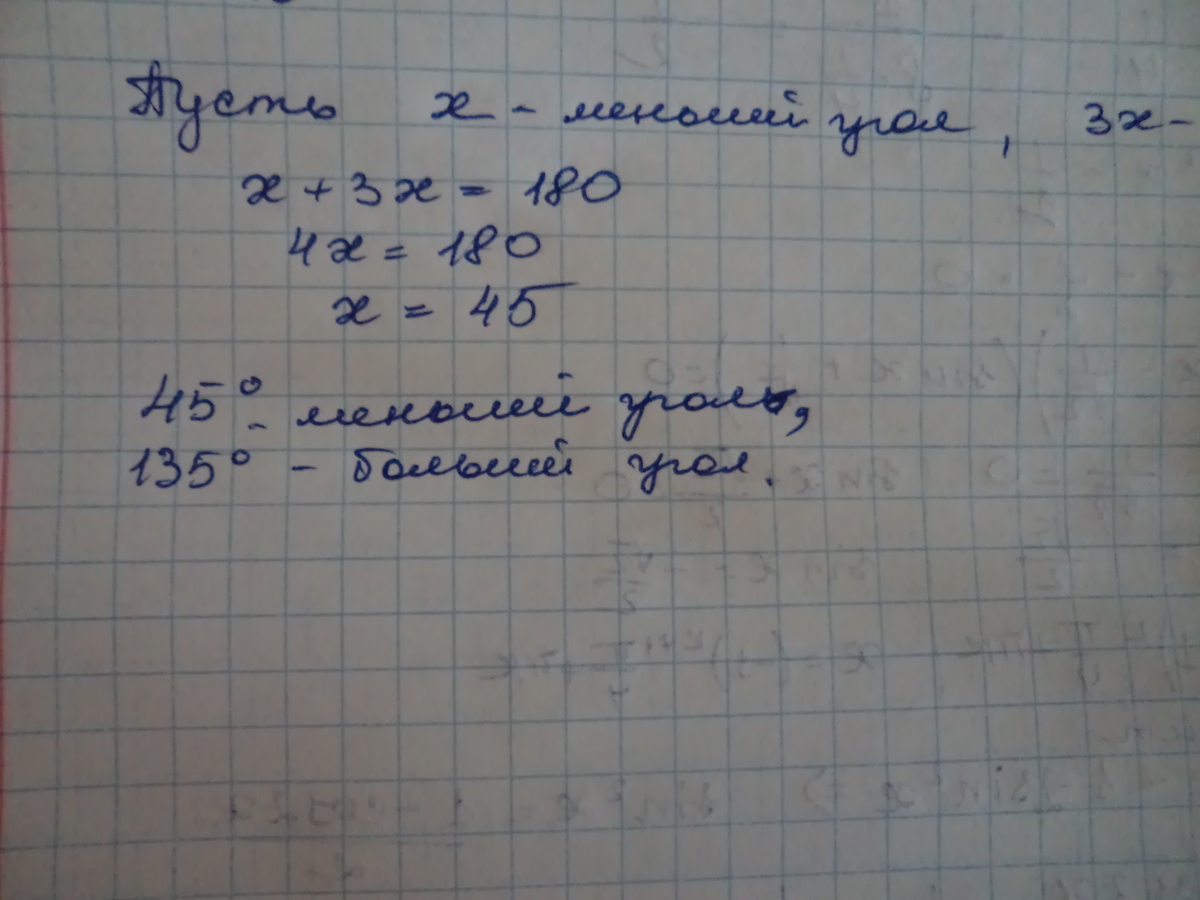 Пусть x - меньший угол, 3x -
x + 3x = 180
4x = 180
x = 45
45° - меньший угол,
135° - больший угол.